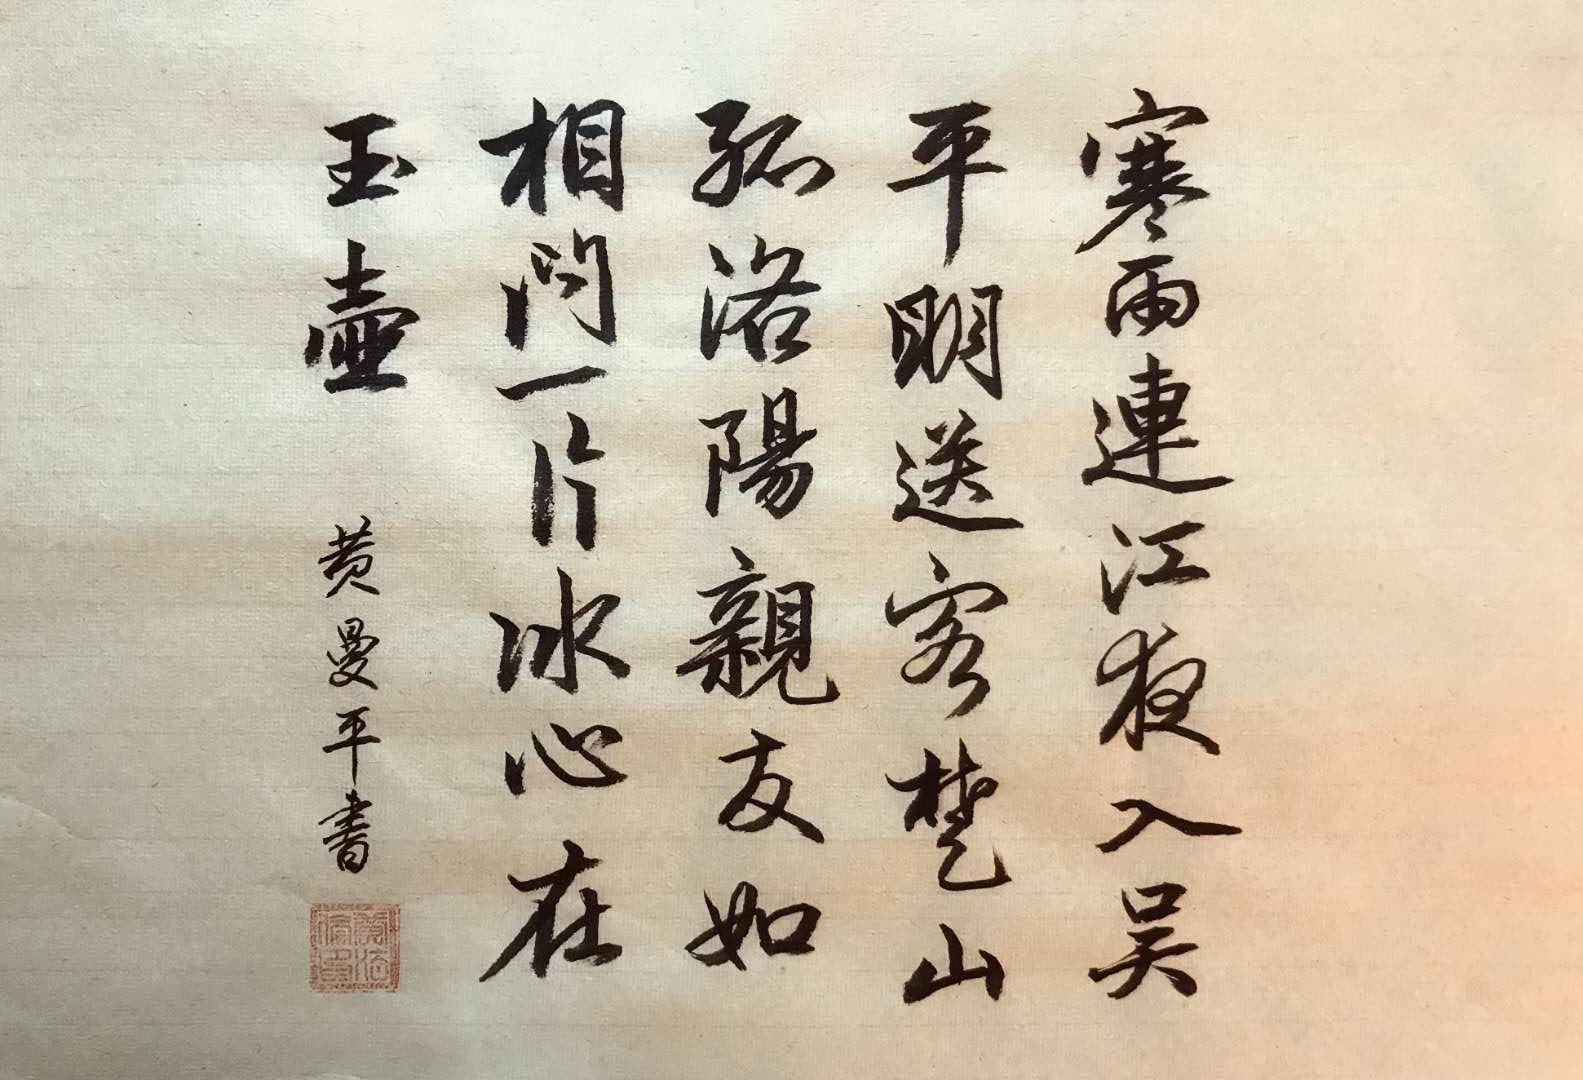 寒雨連江夜入吳
平明送客楚山
孤洛陽親友如
相問一片冰心在
玉壺
黄曼平書